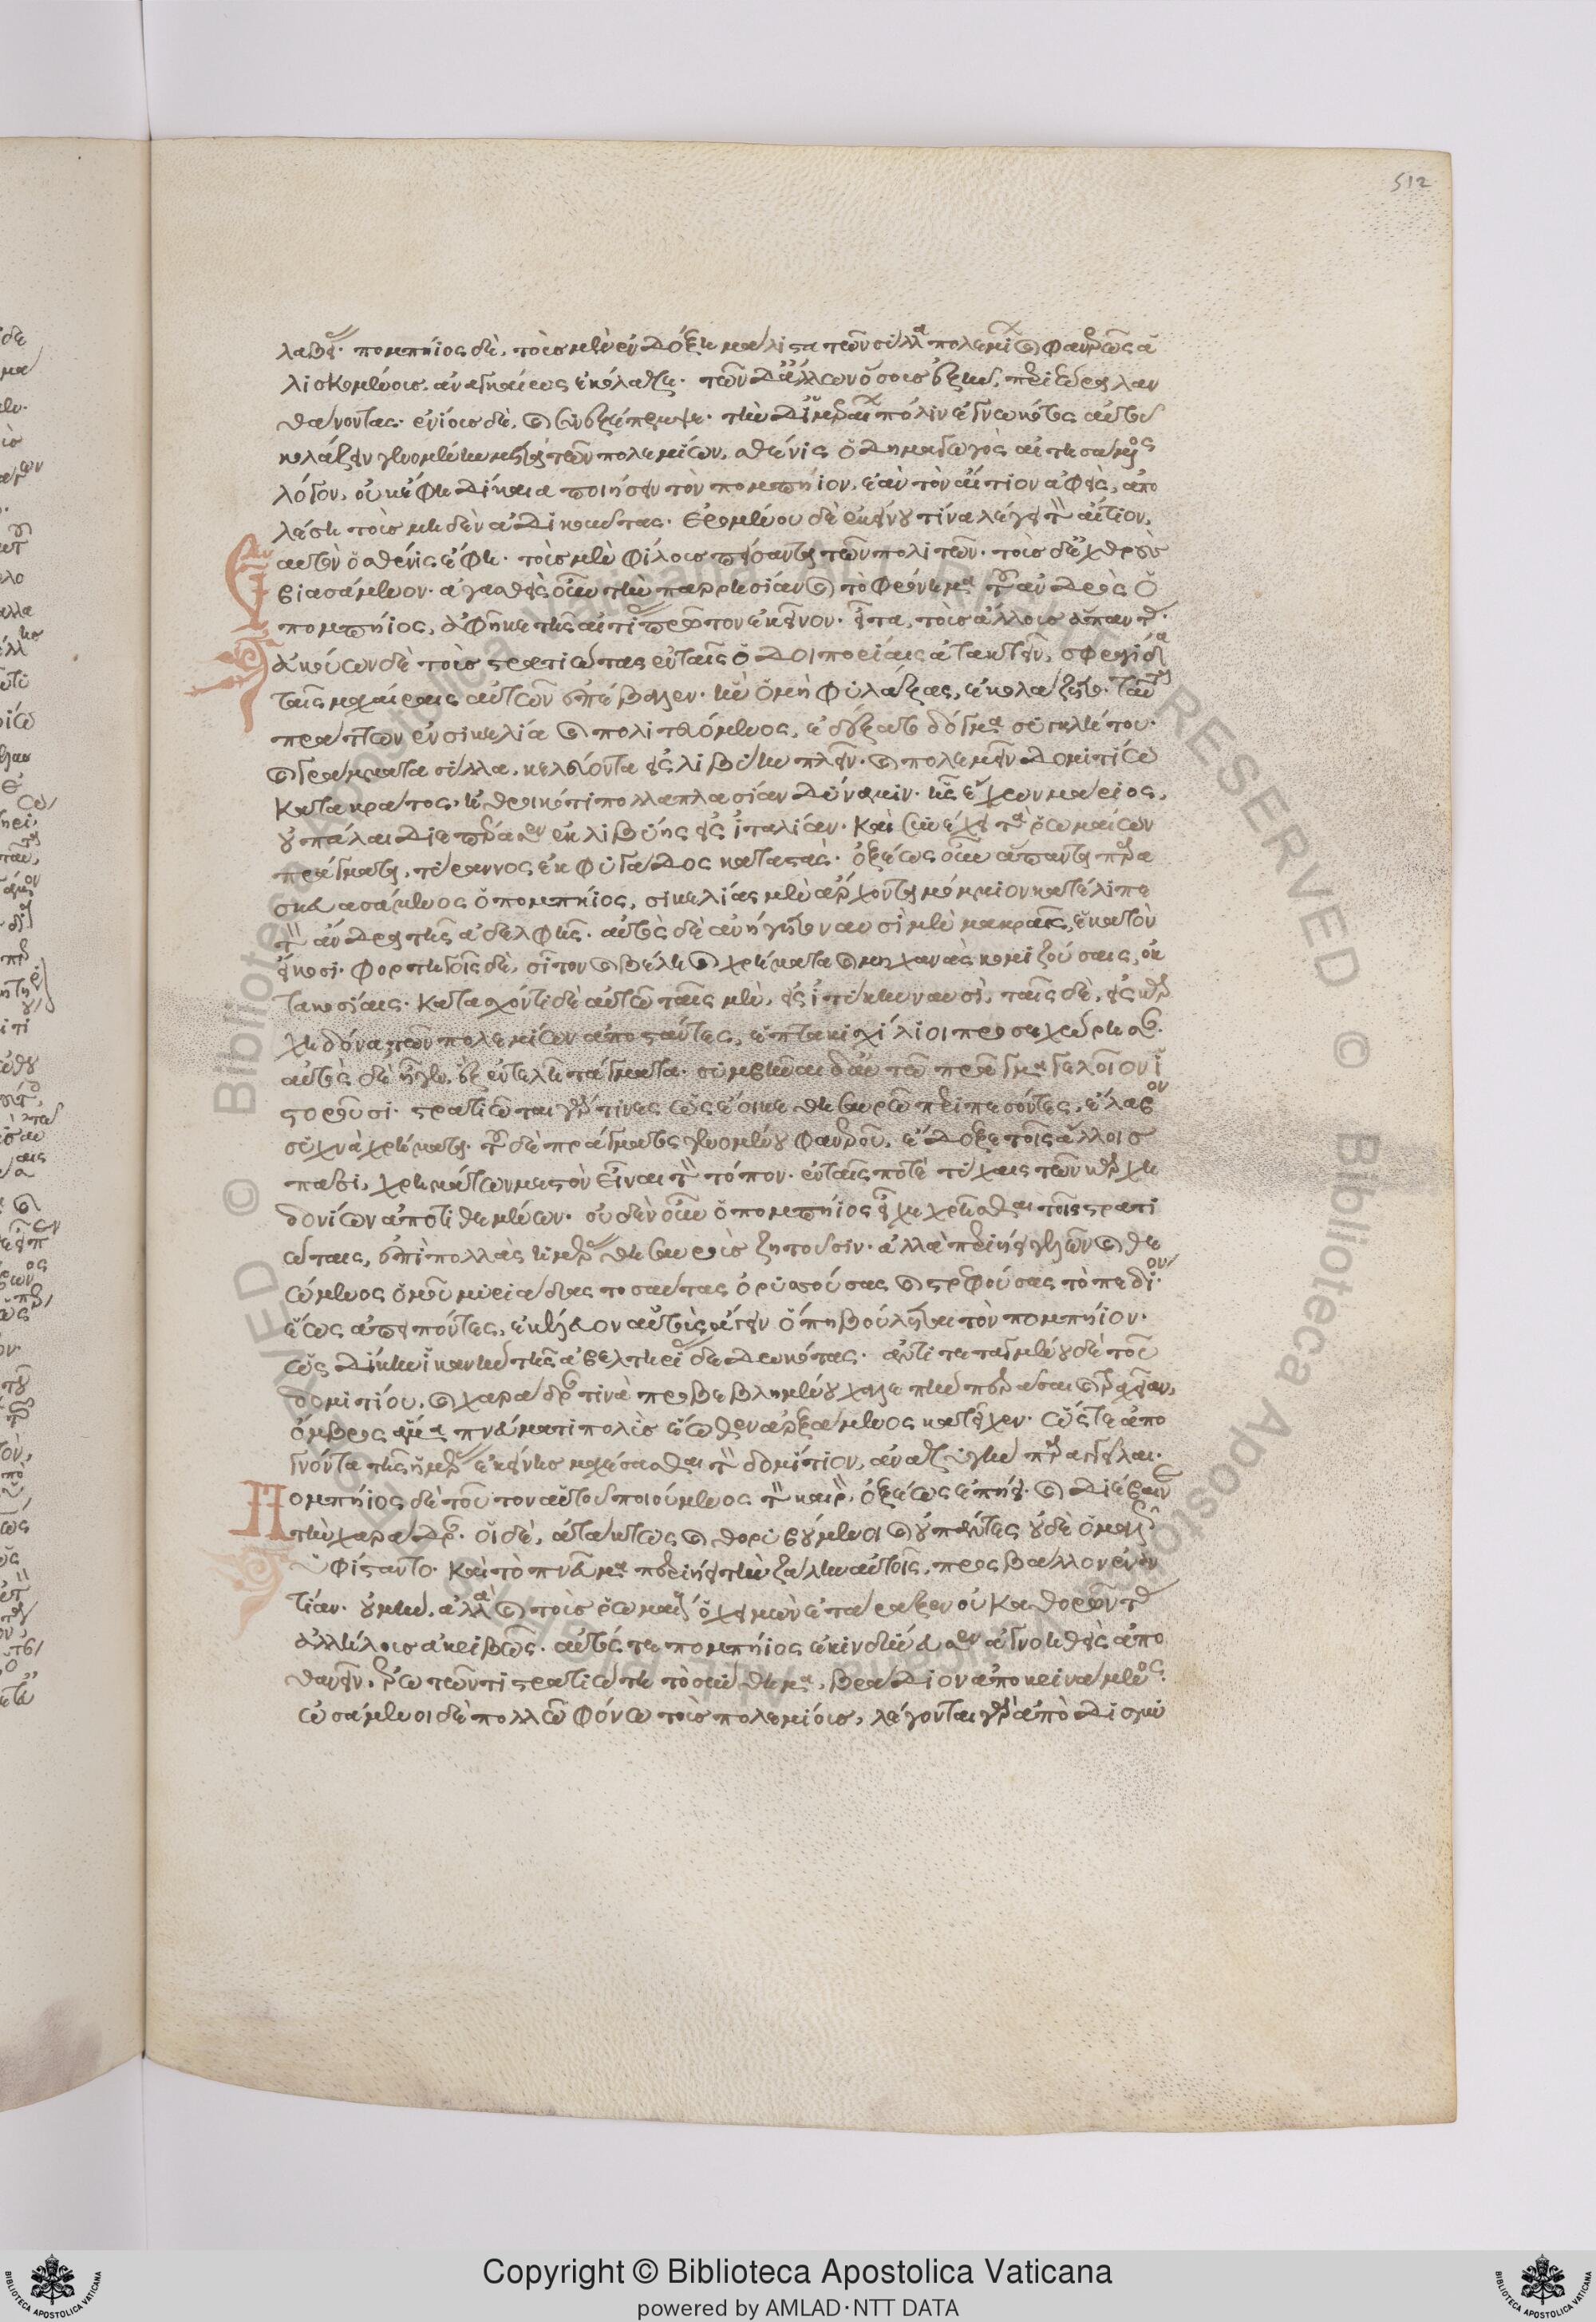 512
λαβεῖν. πομπήιος δὲ, τοὺς μὲν ἐν δόξῃ μάλιστα τῶν σύλλα πολεμίων καὶ φανερῶς ἁ
λισκομένους, ἀναγκαίως ἐκόλαζε. τῶν δ' ἄλλων ὅσους ἐξῆν, περιεώρα λαν
θάνοντας. ἐνίους δὲ, καὶ συνεξέπεμψε. τὴν δ' ἱμεραίων πόλιν ἐγνωκότος αὐτοῦ
κολάζειν γενομένην μετὰ τῶν πολεμίων, σθένις ὁ δημαγωγὸς αἰτησάμενος
λόγον, οὐκ ἔφη δίκαια ποιήσειν τὸν πομπήιον, ἐὰν τὸν αἴτιον ἀφεὶς, ἀπο
λέσῃ τοὺς μηδὲν ἀδικοῦντας. ἐρομένου δὲ ἐκείνου τίνα λέγει τὸν αἴτιον,
αὑτὸν ὁ σθένις ἔφη. τοὺς μὲν φίλους πείσαντα τῶν πολιτῶν. τοὺς δ' ἐχθροὺς
βιασάμενον. ἀγασθεὶς οὖν τὴν παρρησίαν καὶ τὸ φρόνημα τοῦ ἀνδρὸς ὁ
πομπήιος, ἀφῆκε τῆς αἰτίας πρῶτον ἐκεῖνον. εἶτα, τοὺς ἄλλους ἅπαντας.
ἀκούων δὲ τοὺς στρατιώτας ἐν ταῖς ὁδοιπορίαις ἀτακτεῖν, σφραγῖδα
ταῖς μαχαίραις αὐτῶν ἐπέβαλεν. ἣν ὁ μὴ φυλάξας, ἐκολάζετο. ταῦτα
πράττων ἐν σικελίᾳ καὶ πολιτευόμενος, ἐδέξατο δόγμα συγκλήτου.
καὶ γράμματα σύλλα, κελεύοντα εἰς λιβύην πλεῖν. καὶ πολεμεῖν δομιτίῳ
κατὰ κράτος, ἠθροικότι πολλαπλασίαν δύναμιν. ἧς ἔχων μάριος,
οὐ πάλαι διεπέρασεν ἐκ λιβύης εἰς ἰταλίαν. καὶ συνέχεε τὰ ῥωμαίων
πράγματα, τύραννος ἐκ φυγάδος καταστάς. ὀξέως οὖν ἅπαντα παρα
σκευασάμενος ὁ πομπήιος, σικελίας μὲν ἄρχοντα μέμμιον κατέλιπε
τὸν ἄνδρα τῆς ἀδελφῆς. αὐτὸς δὲ ἀνήγετο ναυσὶ μὲν μακραῖς, ἑκατὸν
εἴκοσι. φορτηγοῖς δὲ, σῖτον καὶ βέλη καὶ χρήματα καὶ μηχανὰς κομιζούσαις, ὀκ
τακοσίαις. κατασχόντι δὲ αὐτῷ ταῖς μὲν, εἰς ἰτύκην ναυσὶ, ταῖς δὲ, εἰς καρ
χηδόνα, τῶν πολεμίων ἀποστάντες, ἑπτακισχίλιοι προσεχώρησαν.
αὐτὸς δὲ ἦγεν, ἓξ ἐντελῆ τάγματα. συμβῆναι δ' αὐτῷ πρᾶγμα γελοῖον ἱ
στοροῦσι. στρατιῶται γάρ τινες ὡς ἔοικε θησαυρῷ περιπεσόντες, ἔλαβον
συχνὰ χρήματα. τοῦ δὲ πράγματος γενομένου φανεροῦ, ἔδοξε τοῖς ἄλλοις
πᾶσι, χρημάτων μεστὸν εἶναι τὸν τόπον. ἐν ταῖς ποτὲ τύχαις τῶν καρχη
δονίων ἀποτιθεμένων. οὐδὲν οὖν ὁ πομπήιος εἶχε χρῆσθαι τοῖς στρατι
ώταις, ἐπὶ πολλὰς ἡμέρας θησαυροὺς ζητοῦσιν. ἀλλὰ περιῄει γελῶν καὶ θε
ώμενος ὁμοῦ μυριάδας τοσαύτας ὀρυσσούσας καὶ στρεφούσας τὸ πεδίον.
ἕως ἀπειπόντες, ἐκέλευον αὐτοὺς ἄγειν ὅπῃ βούλεται τὸν πομπήιον.
ὡς δίκην ἱκανὴν τῆς ἀβελτηρίας δεδωκότας. ἀντιτεταγμένου δὲ τοῦ
δομιτίου, καὶ χαράδραν τινὰ προβεβλημένου χαλεπὴν περᾶσαι καὶ τραχεῖαν,
ὄμβρος ἅμα πνεύματι πολὺς ἕωθεν ἀρξάμενος κατεῖχεν. ὥστε ἀπο
γνόντα τῆς ἡμέρας ἐκείνης μαχέσασθαι τὸν δομίτιον, ἀναζυγὴν παραγγεῖλαι.
Πομπήιος δὲ τοῦτον αὑτοῦ ποιούμενος τὸν καιρὸν, ὀξέως ἐπῄει. καὶ διέβαινε
τὴν χαράδραν. οἱ δὲ, ἀτάκτως καὶ θορυβούμενοι καὶ οὐ πάντες οὐδὲ ὁμαλῶς
ὑφίσταντο. καὶ τὸ πνεῦμα περιῄει τὴν ζάλην αὐτοῖς, προσβάλλον ἐναν
τίαν. οὐ μὴν, ἀλλὰ καὶ τοὺς ῥωμαίους ὁ χειμὼν ἐτάραξεν οὐ καθορῶντας
ἀλλήλους ἀκριβῶς. αὐτός τε πομπήιος ἐκινδύνευσεν ἀγνοηθεὶς ἀπο
θανεῖν, ἐρωτῶντι στρατιώτῃ τὸ σύνθημα, βράδιον ἀποκρινάμενος.
ὠσάμενοι δὲ πολλῷ φόνῳ τοὺς πολεμίους, λέγονται γὰρ ἀπὸ δισμυ
Copyright © Biblioteca Apostolica Vaticana
powered by AMLAD·NTT DATA